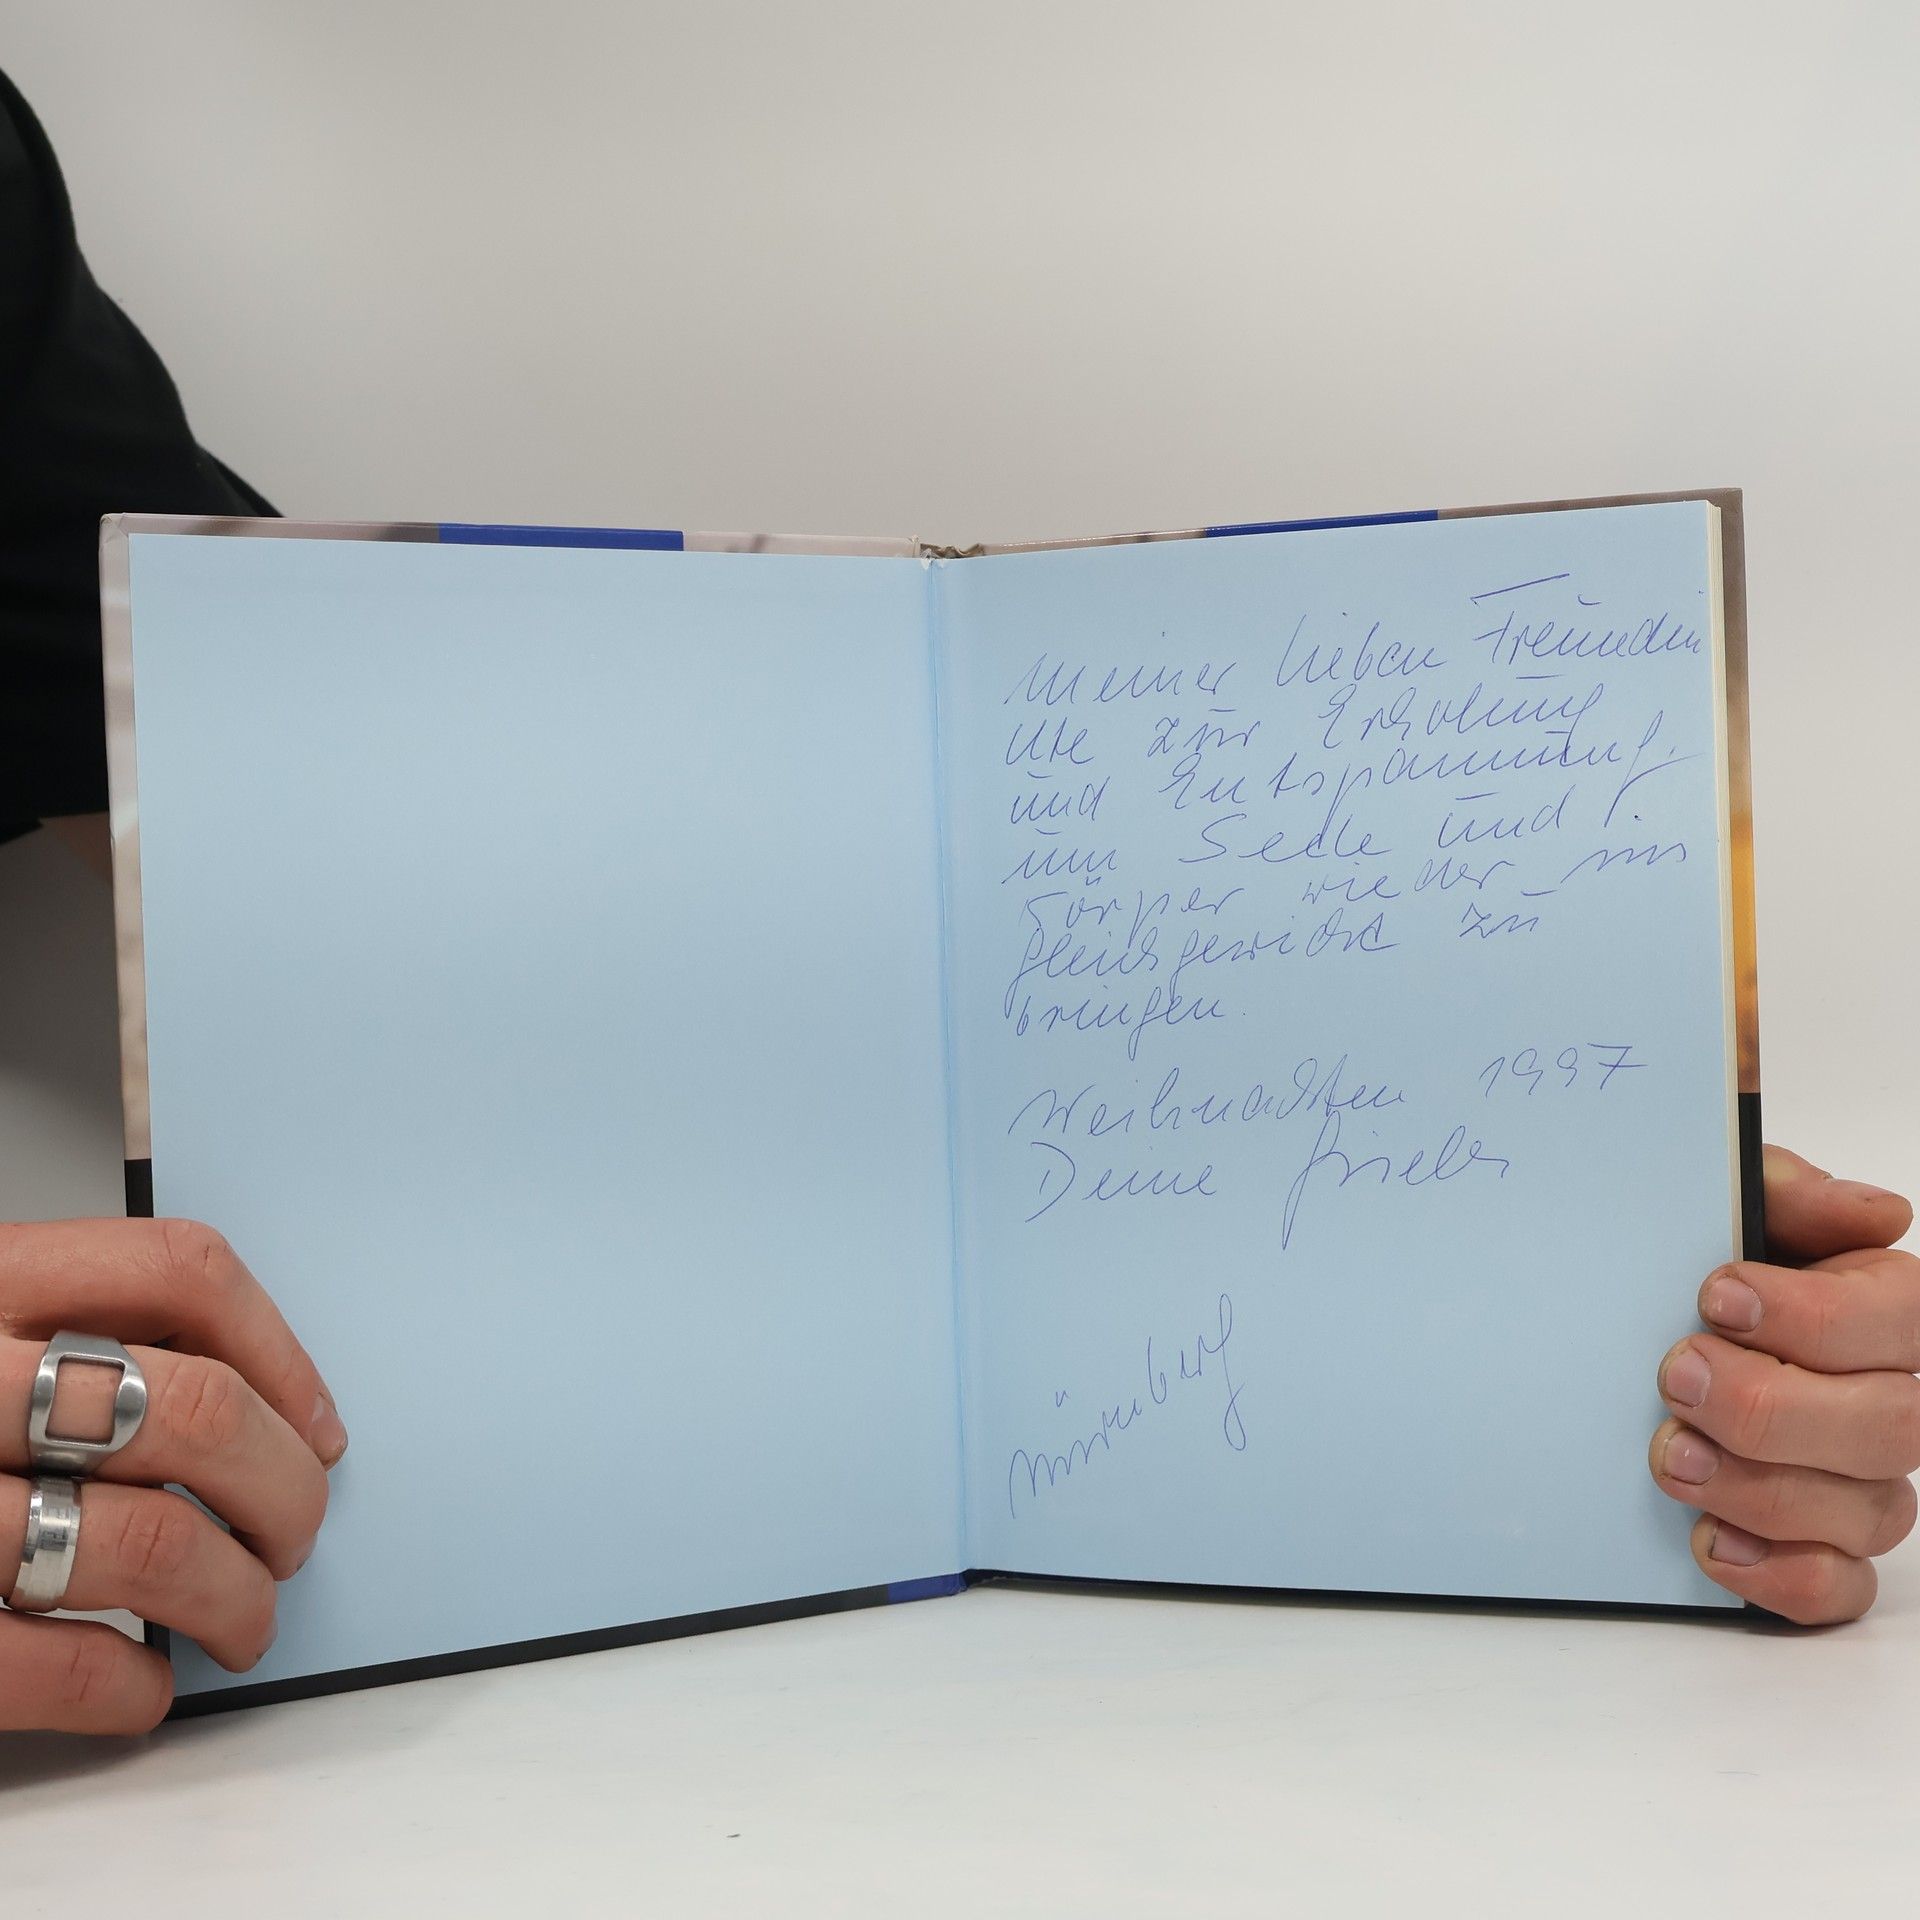 Meiner lieben Freundin
Ute zur Erholung
und Entspannung.
um Seele und
Körper wieder ins
gleichgewicht zu
bringen.
Weihnachten 1997
Deine
Nürnberg